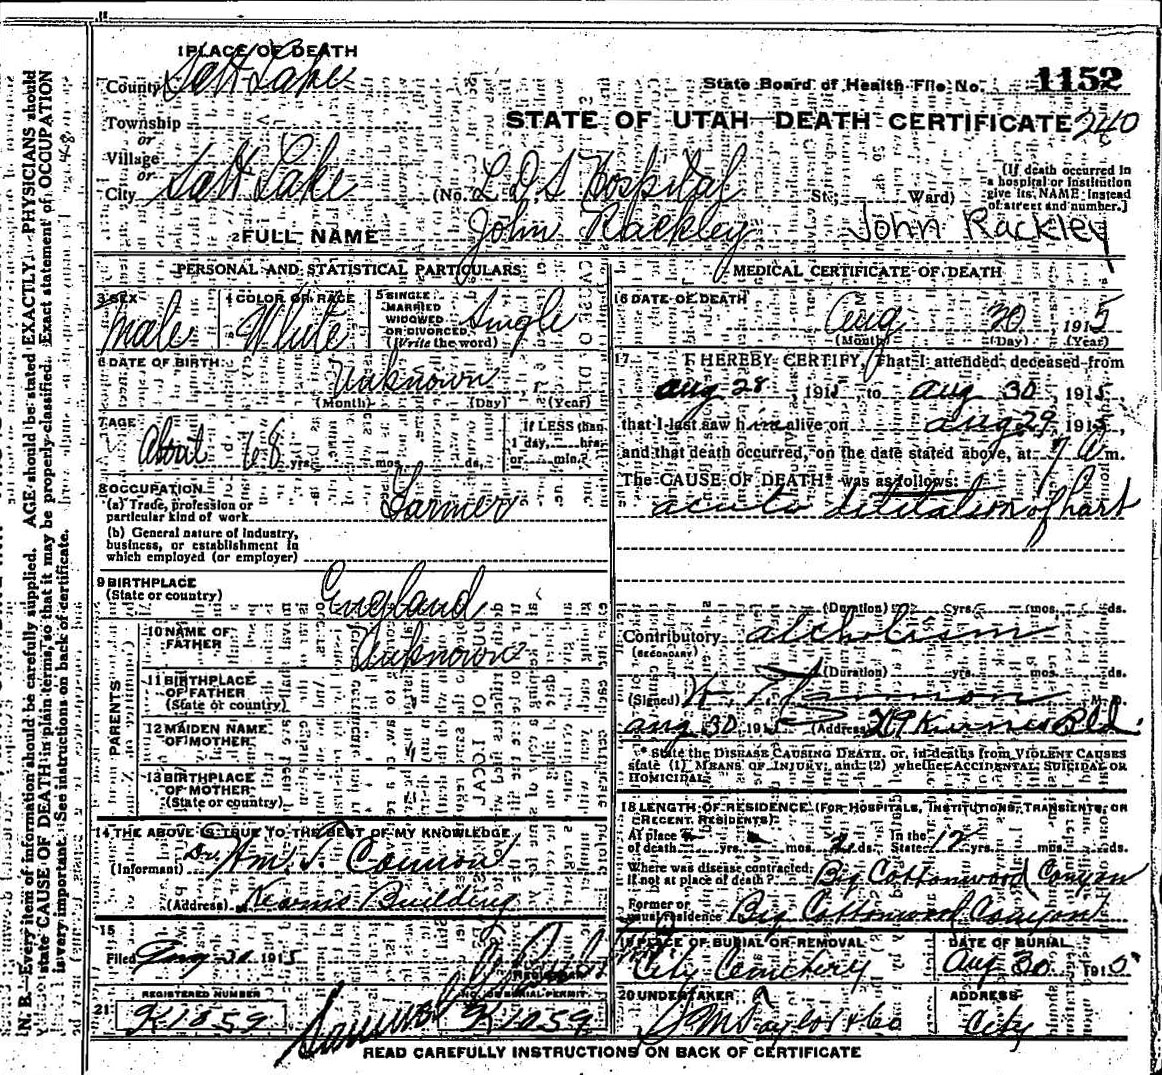 1 PLACE OF DEATH
County Salt Lake
State Board of Health File No. 1152
Township
STATE OF UTAH—DEATH CERTIFICATE 240
or
Village
or
City Salt Lake (No. L D S Hospital St.; Ward)
[If death occurred in a hospital or institution give its NAME instead of street and number.]
2 FULL NAME John Rackley John Rackley
PERSONAL AND STATISTICAL PARTICULARS
3 SEX Male
4 COLOR OR RACE White
5 SINGLE MARRIED WIDOWED OR DIVORCED (Write the word) Single
6 DATE OF BIRTH Unknown
(Month) (Day) (Year)
7 AGE About 68 yrs. mos. ds.
If LESS than 1 day, hrs. or min.?
8 OCCUPATION
(a) Trade, profession or particular kind of work Farmer
(b) General nature of industry, business, or establishment in which employed (or employer)
9 BIRTHPLACE (State or country) England
PARENTS
10 NAME OF FATHER Unknown
11 BIRTHPLACE OF FATHER (State or country)
12 MAIDEN NAME OF MOTHER
13 BIRTHPLACE OF MOTHER (State or country)
14 THE ABOVE IS TRUE TO THE BEST OF MY KNOWLEDGE
(Informant) Dr. Wm. T. Cannon
(Address) Kearns Building
15
Filed Aug 30 1915
REGISTRAR
21 REGISTERED NUMBER K1059
NO. BURIAL PERMIT K1059
MEDICAL CERTIFICATE OF DEATH
16 DATE OF DEATH Aug 30, 1915
(Month) (Day) (Year)
17 I HEREBY CERTIFY, That I attended deceased from
Aug 28 1915, to Aug 30 1915,
that I last saw him alive on Aug 29, 1915,
and that death occurred, on the date stated above, at 7 A m.
The CAUSE OF DEATH* was as follows:
acute dititation of hart
(Duration) yrs. mos. ds.
Contributory alcholism
(SECONDARY)
(Duration) yrs. mos. ds.
(Signed) M.D.
Aug 30 1915 (Address) 219 Kearns Bld.
* State the DISEASE CAUSING DEATH, or, in deaths from VIOLENT CAUSES state (1) MEANS OF INJURY; and (2) whether ACCIDENTAL, SUICIDAL OR HOMICIDAL.
18 LENGTH OF RESIDENCE (FOR HOSPITALS, INSTITUTIONS, TRANSIENTS, OR RECENT RESIDENTS)
At place of death yrs. mos. 2 ds. In the State 12 yrs. mos. ds.
Where was disease contracted, if not at place of death? Big Cottonwood Canyon
Former or usual residence Big Cottonwood Canyon
19 PLACE OF BURIAL OR REMOVAL City Cemetery
DATE OF BURIAL Aug 30 1915
20 UNDERTAKER S M Taylor & Co
ADDRESS City
READ CAREFULLY INSTRUCTIONS ON BACK OF CERTIFICATE
N. B.—Every item of information should be carefully supplied. AGE should be stated EXACTLY. PHYSICIANS should
state CAUSE OF DEATH in plain terms, so that it may be properly classified. Exact statement of OCCUPATION
is very important. See instructions on back of certificate.